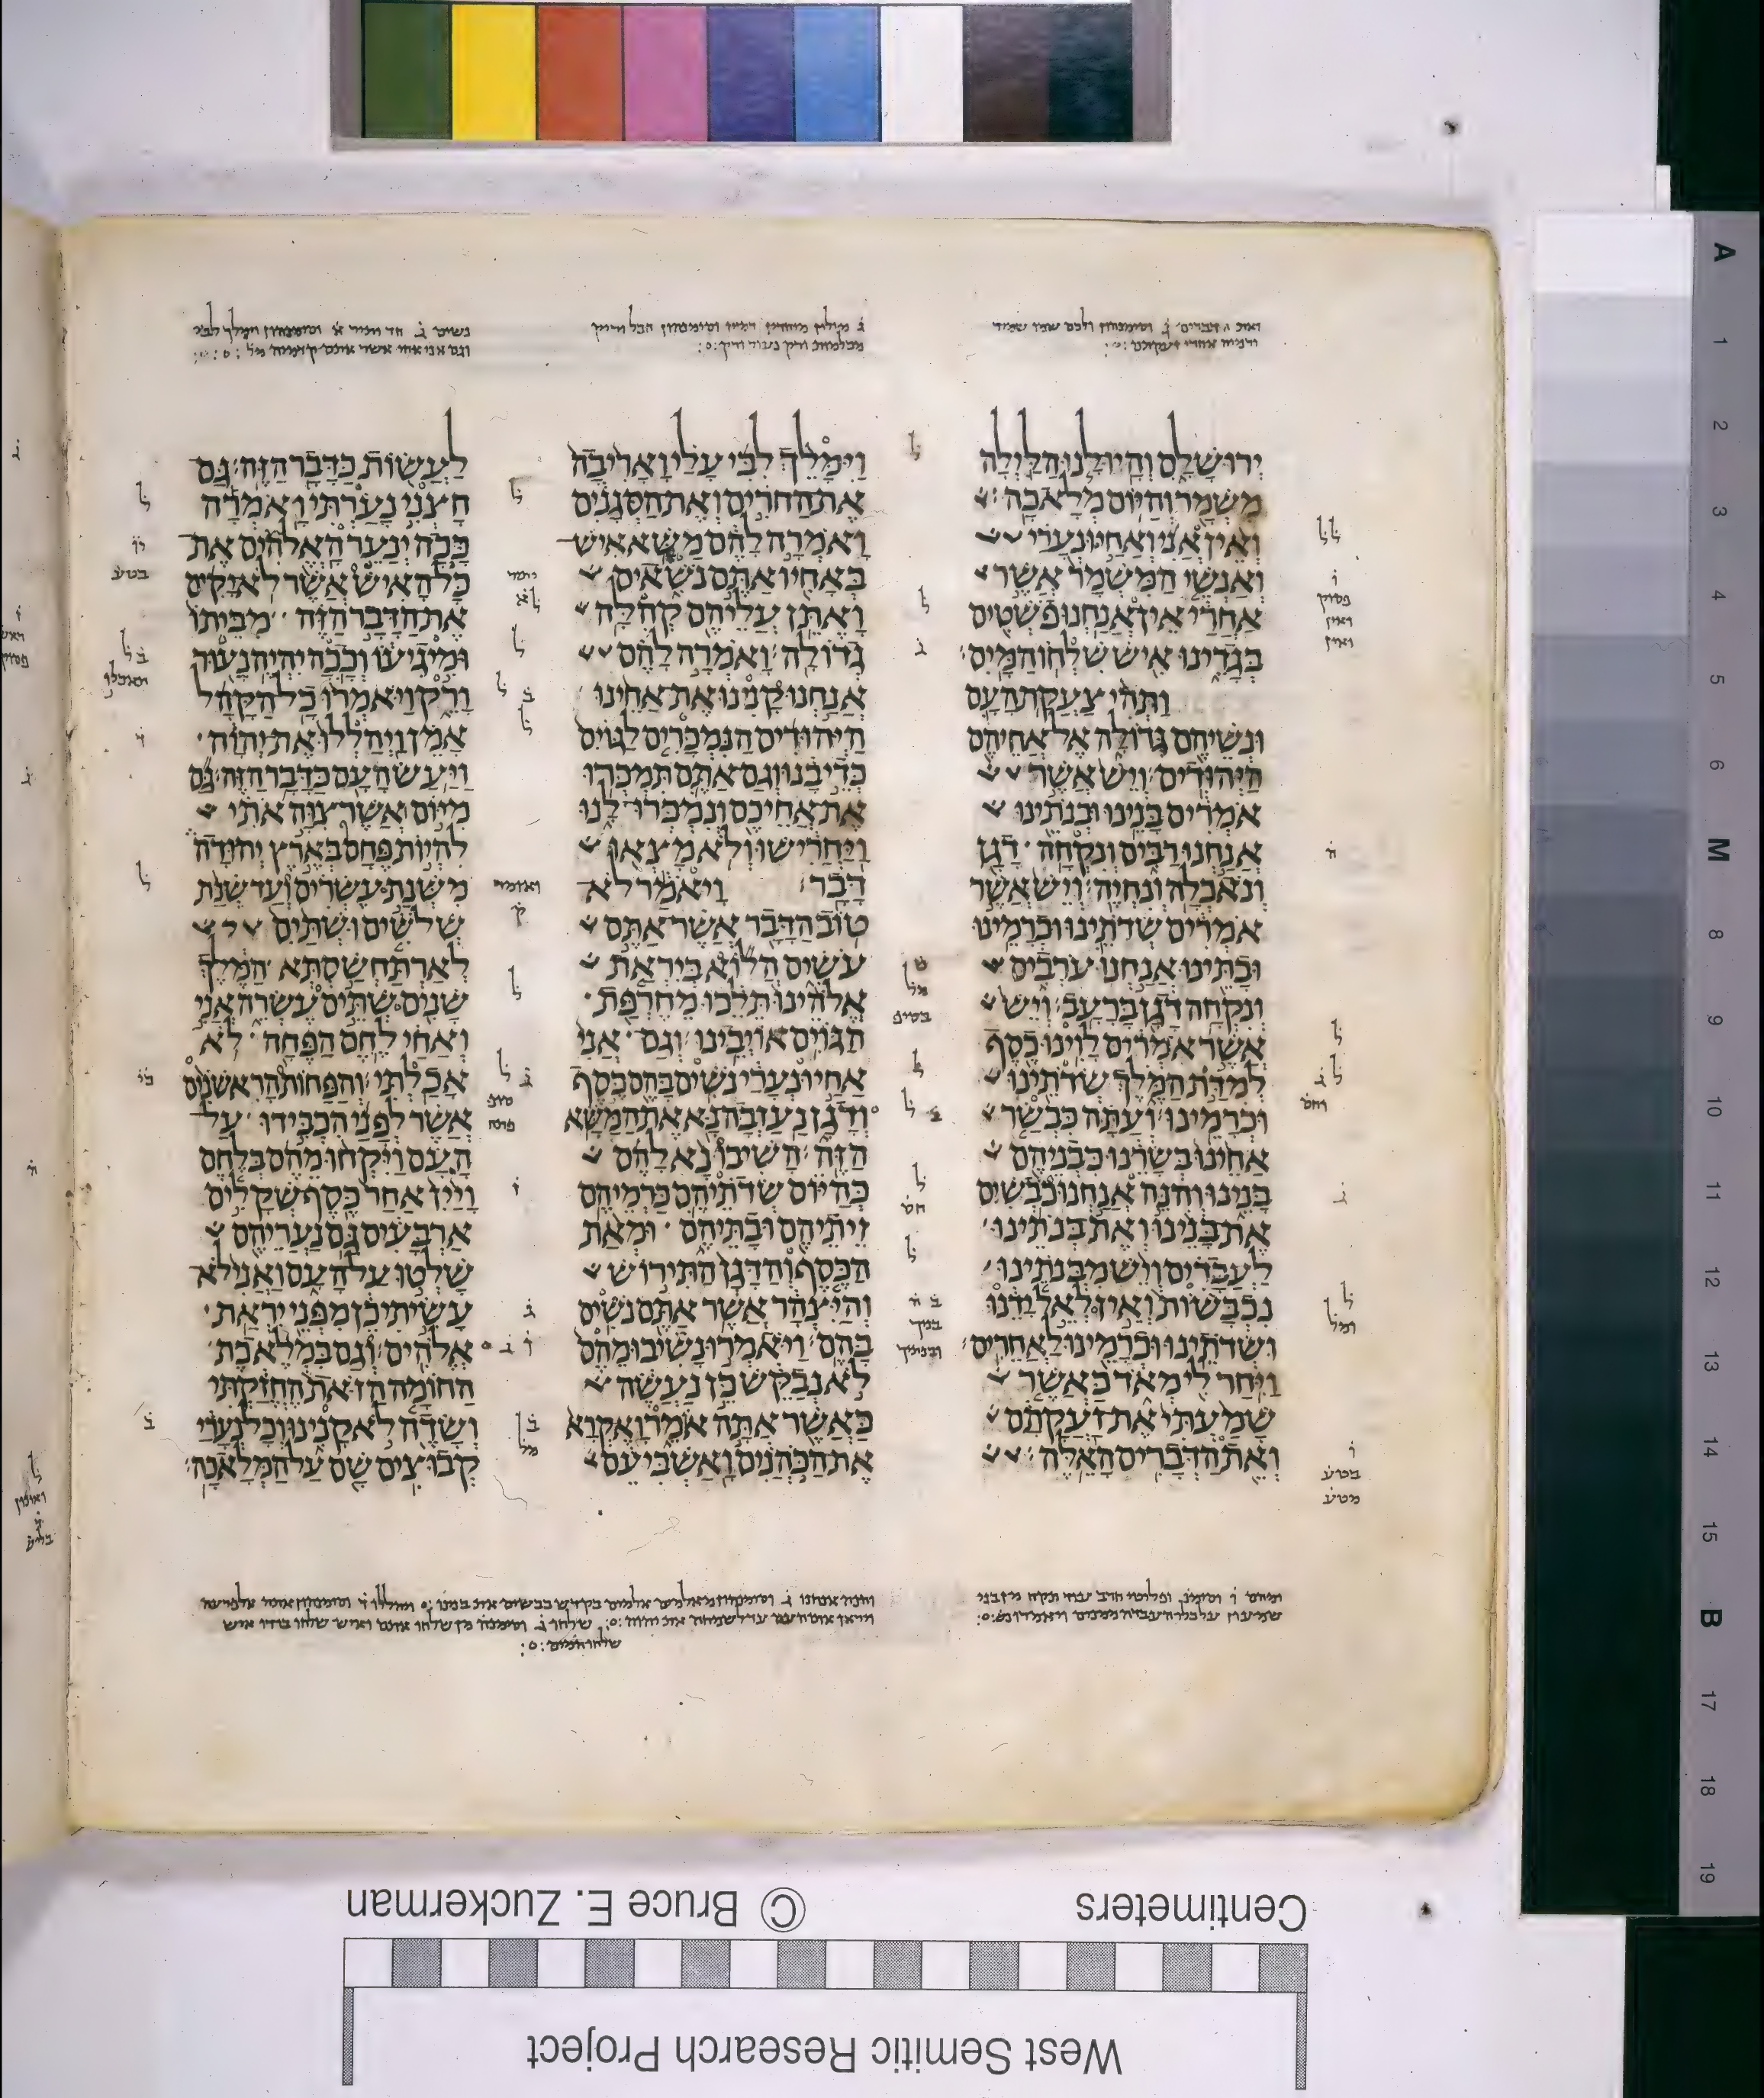 ירושלם והיו לנו הלילה
משמר והיום מלאכה׃
ואין אני ואחי ונערי
ואנשי המשמר אשר
אחרי אין אנחנו פשטים
בגדינו איש שלחו המים׃
ותהי צעקת העם
ונשיהם גדולה אל אחיהם
היהודים׃ ויש אשר
אמרים בנינו ובנתינו
אנחנו רבים ונקחה דגן
ונאכלה ונחיה׃ ויש אשר
אמרים שדתינו וכרמינו
ובתינו אנחנו ערבים
ונקחה דגן ברעב׃ ויש
אשר אמרים לוינו כסף
למדת המלך שדתינו
וכרמינו׃ ועתה כבשר
אחינו בשרנו כבניהם
בנינו והנה אנחנו כבשים
את בנינו ואת בנתינו
לעבדים ויש מבנתינו
נכבשות ואין לאל ידנו
ושדתינו וכרמינו לאחרים׃
ויחר לי מאד כאשר
שמעתי את זעקתם
ואת הדברים האלה׃
וימלך לבי עלי ואריבה
את החרים ואת הסגנים
ואמרה להם משא איש
באחיו אתם נשאים
ואתן עליהם קהלה
גדולה׃ ואמרה להם
אנחנו קנינו את אחינו
היהודים הנמכרים לגוים
כדי בנו וגם אתם תמכרו
את אחיכם ונמכרו לנו
ויחרישו ולא מצאו
דבר׃ ויאמר לא
טוב הדבר אשר אתם
עשים הלוא ביראת
אלהינו תלכו מחרפת
הגוים אויבינו׃ וגם אני
אחי ונערי נשים בהם כסף
ודגן נעזבה נא את המשא
הזה׃ השיבו נא להם
כהיום שדתיהם כרמיהם
זיתיהם ובתיהם ומאת
הכסף והדגן התירוש
והיצהר אשר אתם נשים
בהם׃ ויאמרו נשיב ומהם
לא נבקש כן נעשה
כאשר אתה אומר ואקרא
את הכהנים ואשביעם
לעשות כדבר הזה׃ גם
חצני נערתי ואמרה
ככה ינער האלהים את
כל האיש אשר לא יקים
את הדבר הזה מביתו
ומיגיעו וככה יהיה נעור
ורק ויאמרו כל הקהל
אמן ויהללו את יהוה
ויעש העם כדבר הזה׃ גם
מיום אשר צוה אתי
להיות פחם בארץ יהודה
משנת עשרים ועד שנת
שלשים ושתים
לארתחשסתא המלך
שנים שתים עשרה אני
ואחי לחם הפחה לא
אכלתי׃ והפחות הראשנים
אשר לפני הכבידו על
העם ויקחו מהם בלחם
ויין אחר כסף שקלים
ארבעים גם נעריהם
שלטו על העם ואני לא
עשיתי כן מפני יראת
אלהים׃ וגם במלאכת
החומה הזאת החזקתי
ושדה לא קנינו וכל נערי
קבוצים שם על המלאכה׃
Centimeters
© Bruce E. Zuckerman
West Semitic Research Project
A
1
2
3
4
5
6
M
8
9
10
11
12
13
14
15
B
17
18
19